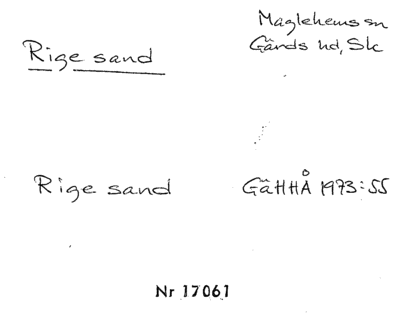 Maglehems sn
Rige sand
Gärds hd, Sk
Rige sand GäHHÅ 1973:55
Nr 17061